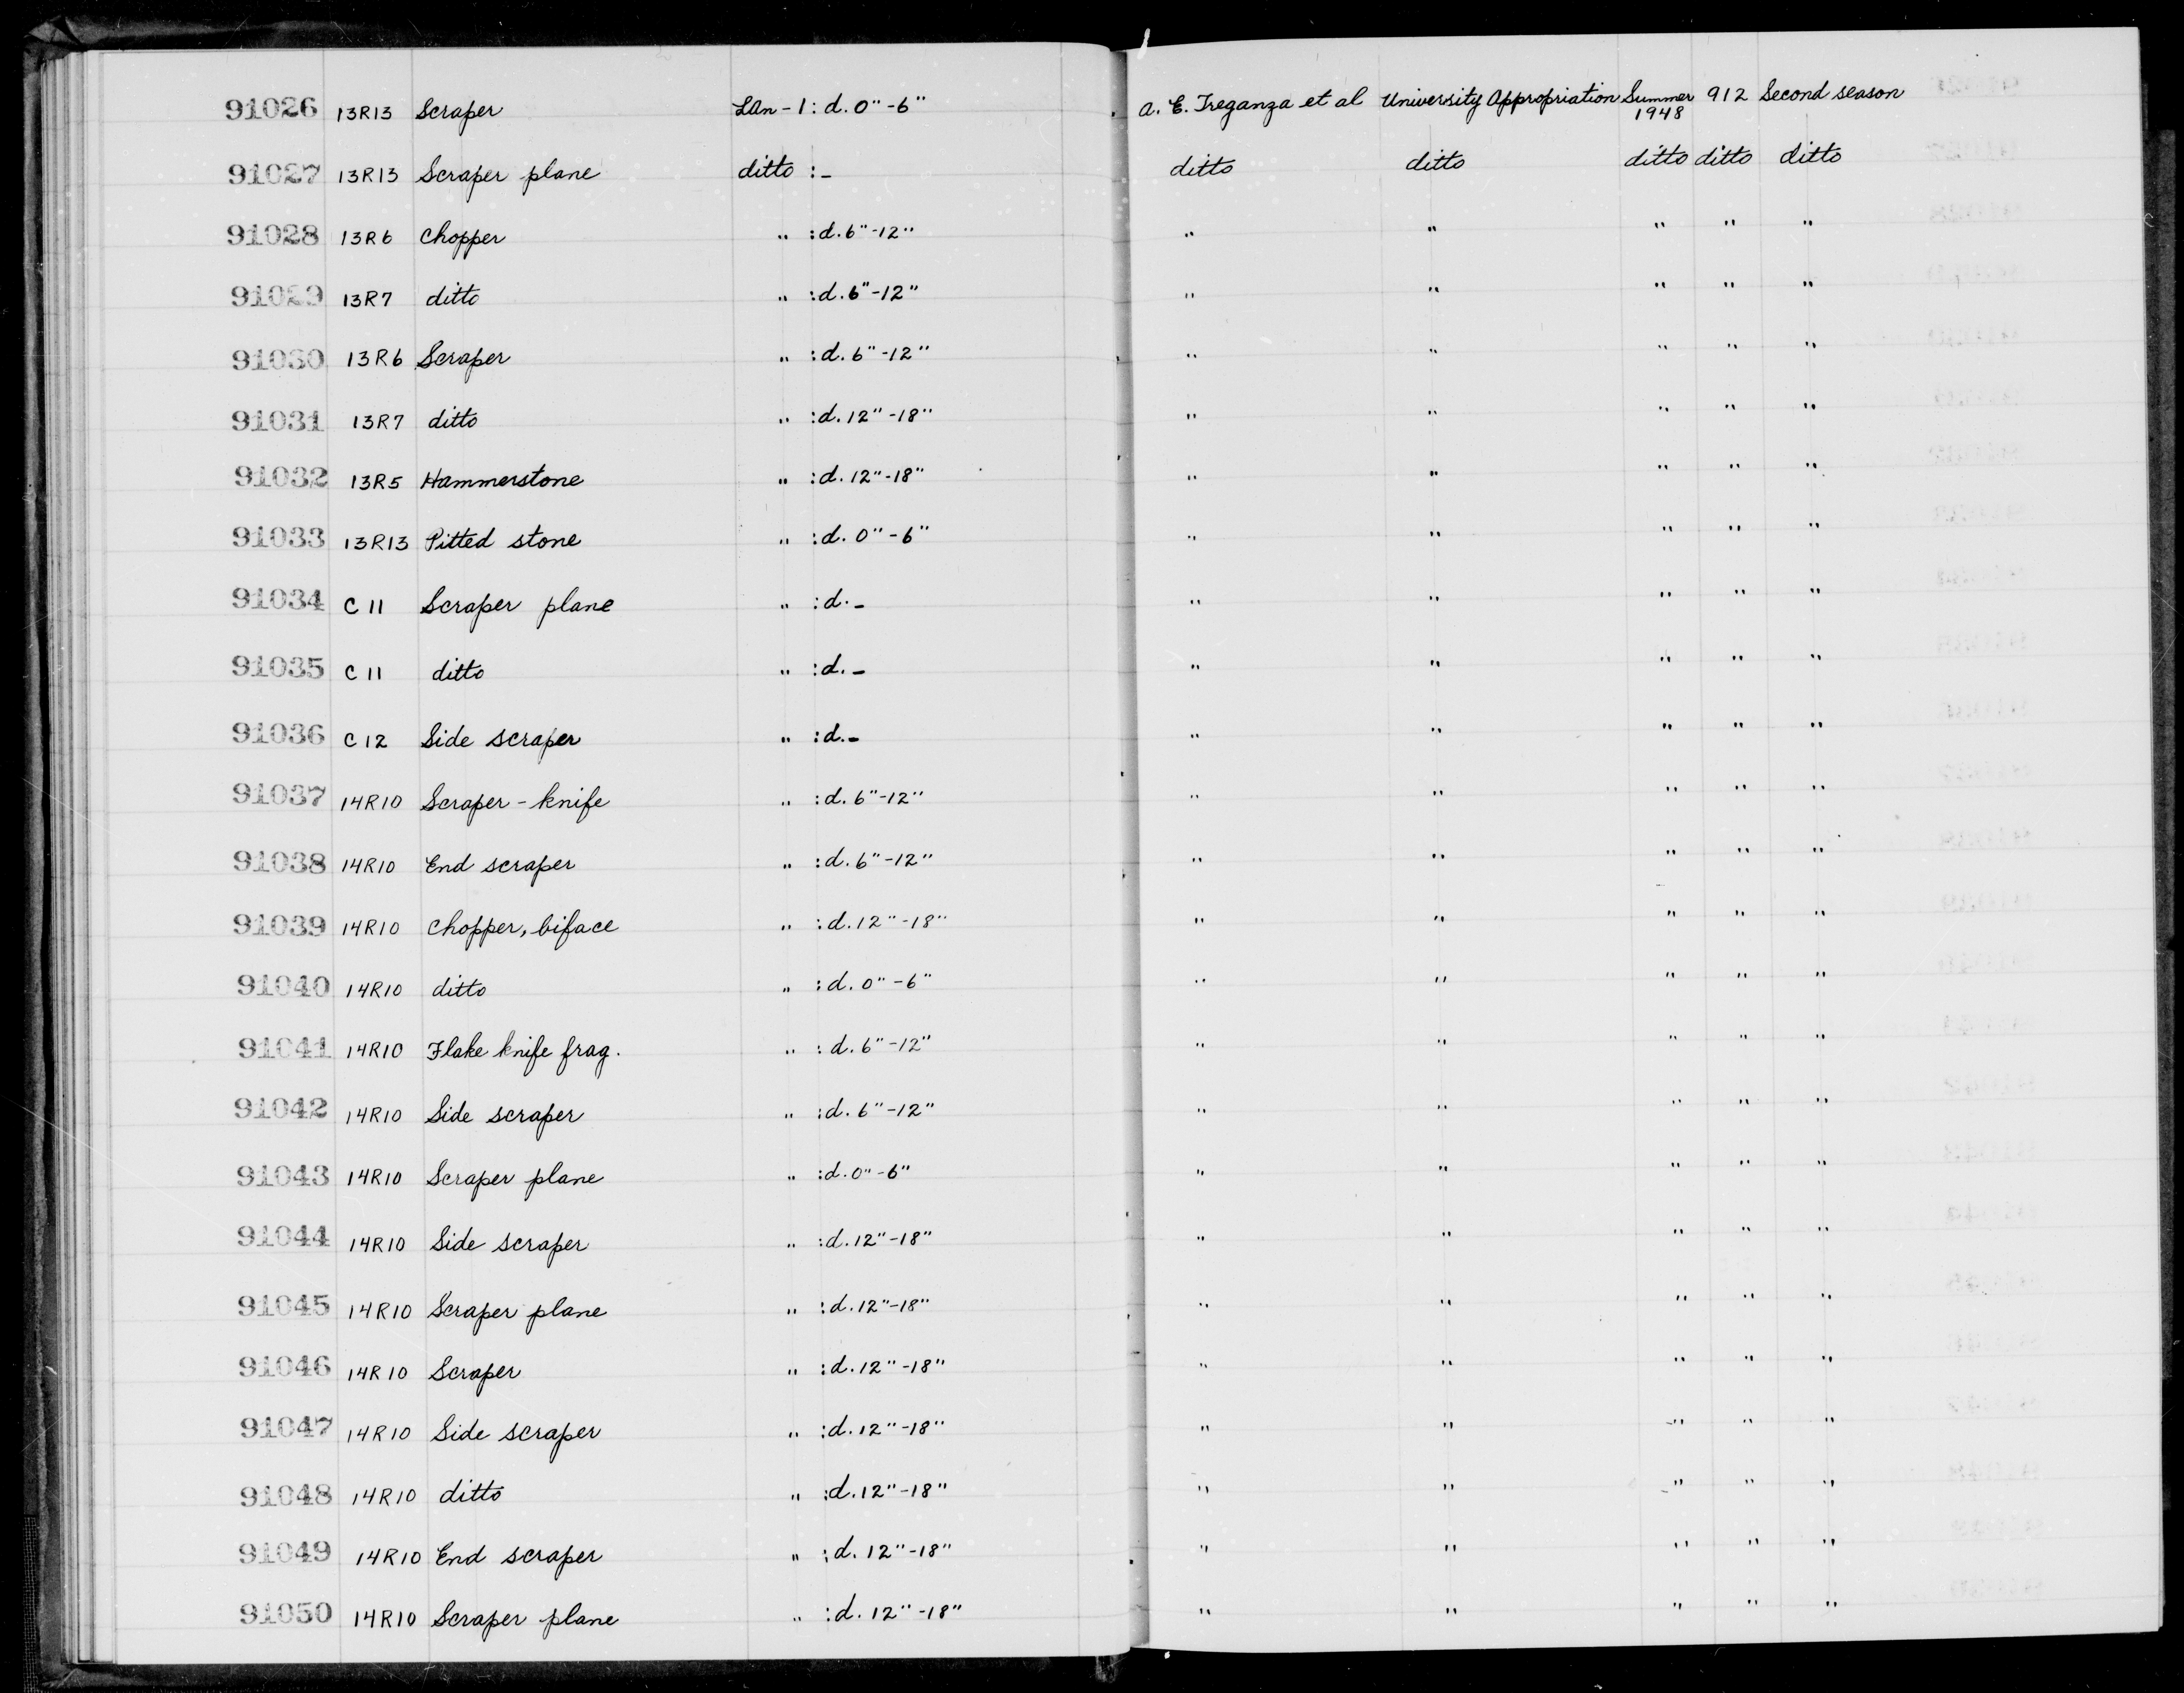 91026 13R13 Scraper LAn-1: d. 0"-6" A. E. Treganza et al University Appropriation Summer 1948 912 Second season
91027 13R13 Scraper plane ditto :- ditto ditto ditto ditto ditto
91028 13R6 Chopper " : d. 6"-12" " " " " "
91029 13R7 ditto " : d. 6"-12" " " " " "
91030 13R6 Scraper " : d. 6"-12" " " " " "
91031 13R7 ditto " : d. 12"-18" " " " " "
91032 13R5 Hammerstone " : d. 12"-18" " " " " "
91033 13R13 Pitted stone " : d. 0"-6" " " " " "
91034 C 11 Scraper plane " : d. - " " " " "
91035 C 11 ditto " : d. - " " " " "
91036 C 12 Side scraper " : d. - " " " " "
91037 14R10 Scraper-knife " : d. 6"-12" " " " " "
91038 14R10 End scraper " : d. 6"-12" " " " " "
91039 14R10 Chopper, biface " : d. 12"-18" " " " " "
91040 14R10 ditto " : d. 0"-6" " " " " "
91041 14R10 Flake knife frag. " : d. 6"-12" " " " " "
91042 14R10 Side scraper " : d. 6"-12" " " " " "
91043 14R10 Scraper plane " : d. 0"-6" " " " " "
91044 14R10 Side scraper " : d. 12"-18" " " " " "
91045 14R10 Scraper plane " : d. 12"-18" " " " " "
91046 14R10 Scraper " : d. 12"-18" " " " " "
91047 14R10 Side scraper " : d. 12"-18" " " " " "
91048 14R10 ditto " : d. 12"-18" " " " " "
91049 14R10 End scraper " : d. 12"-18" " " " " "
91050 14R10 Scraper plane " : d. 12"-18" " " " " "